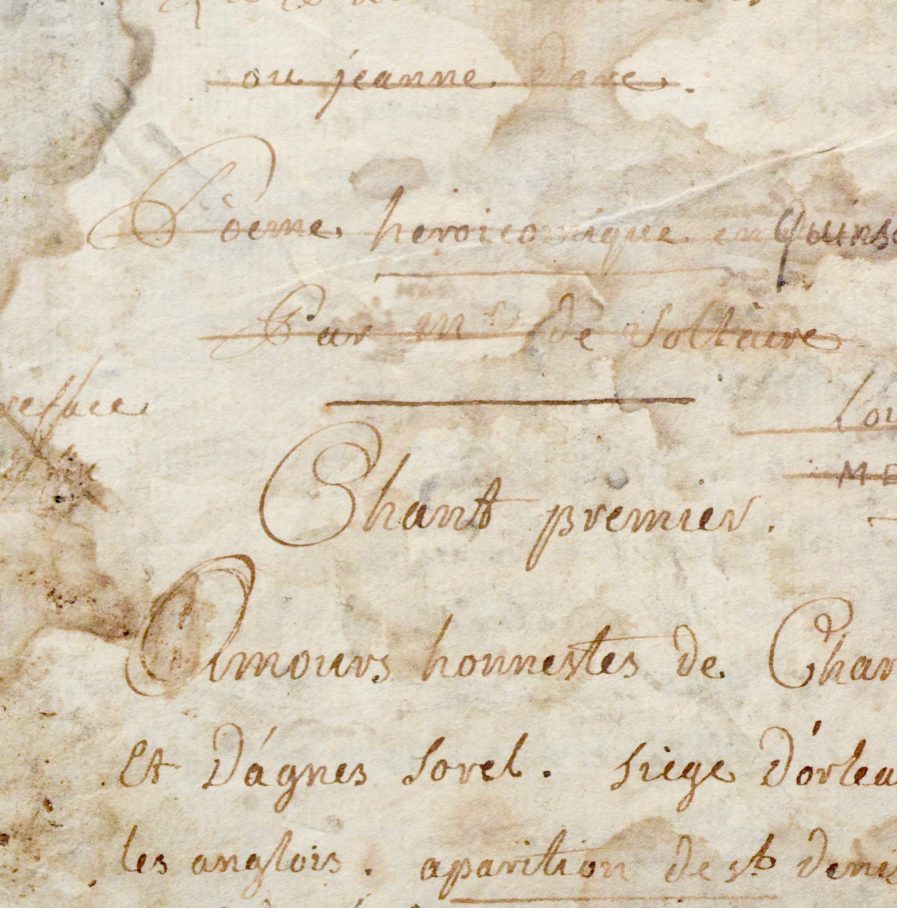 ou jeanne darc.
Pöeme heroicomique en Quinse
Par Mr de Voltaire
Chant premier.
Amours honnestes de Char
Et D'agnes Sorel. Siege D'orlea
les anglois. aparition de st denis